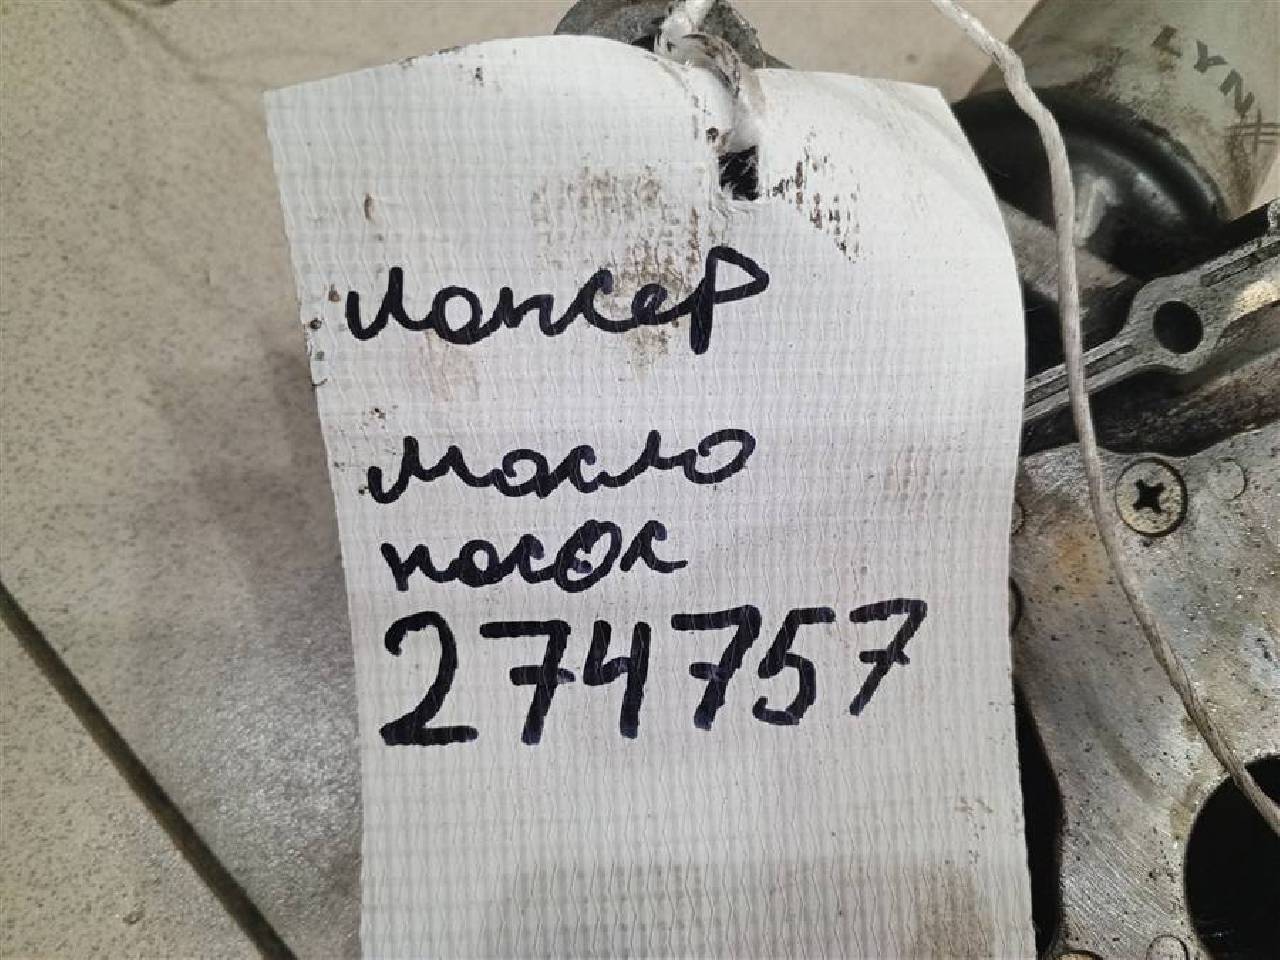 Лансер
масло
насос
274757